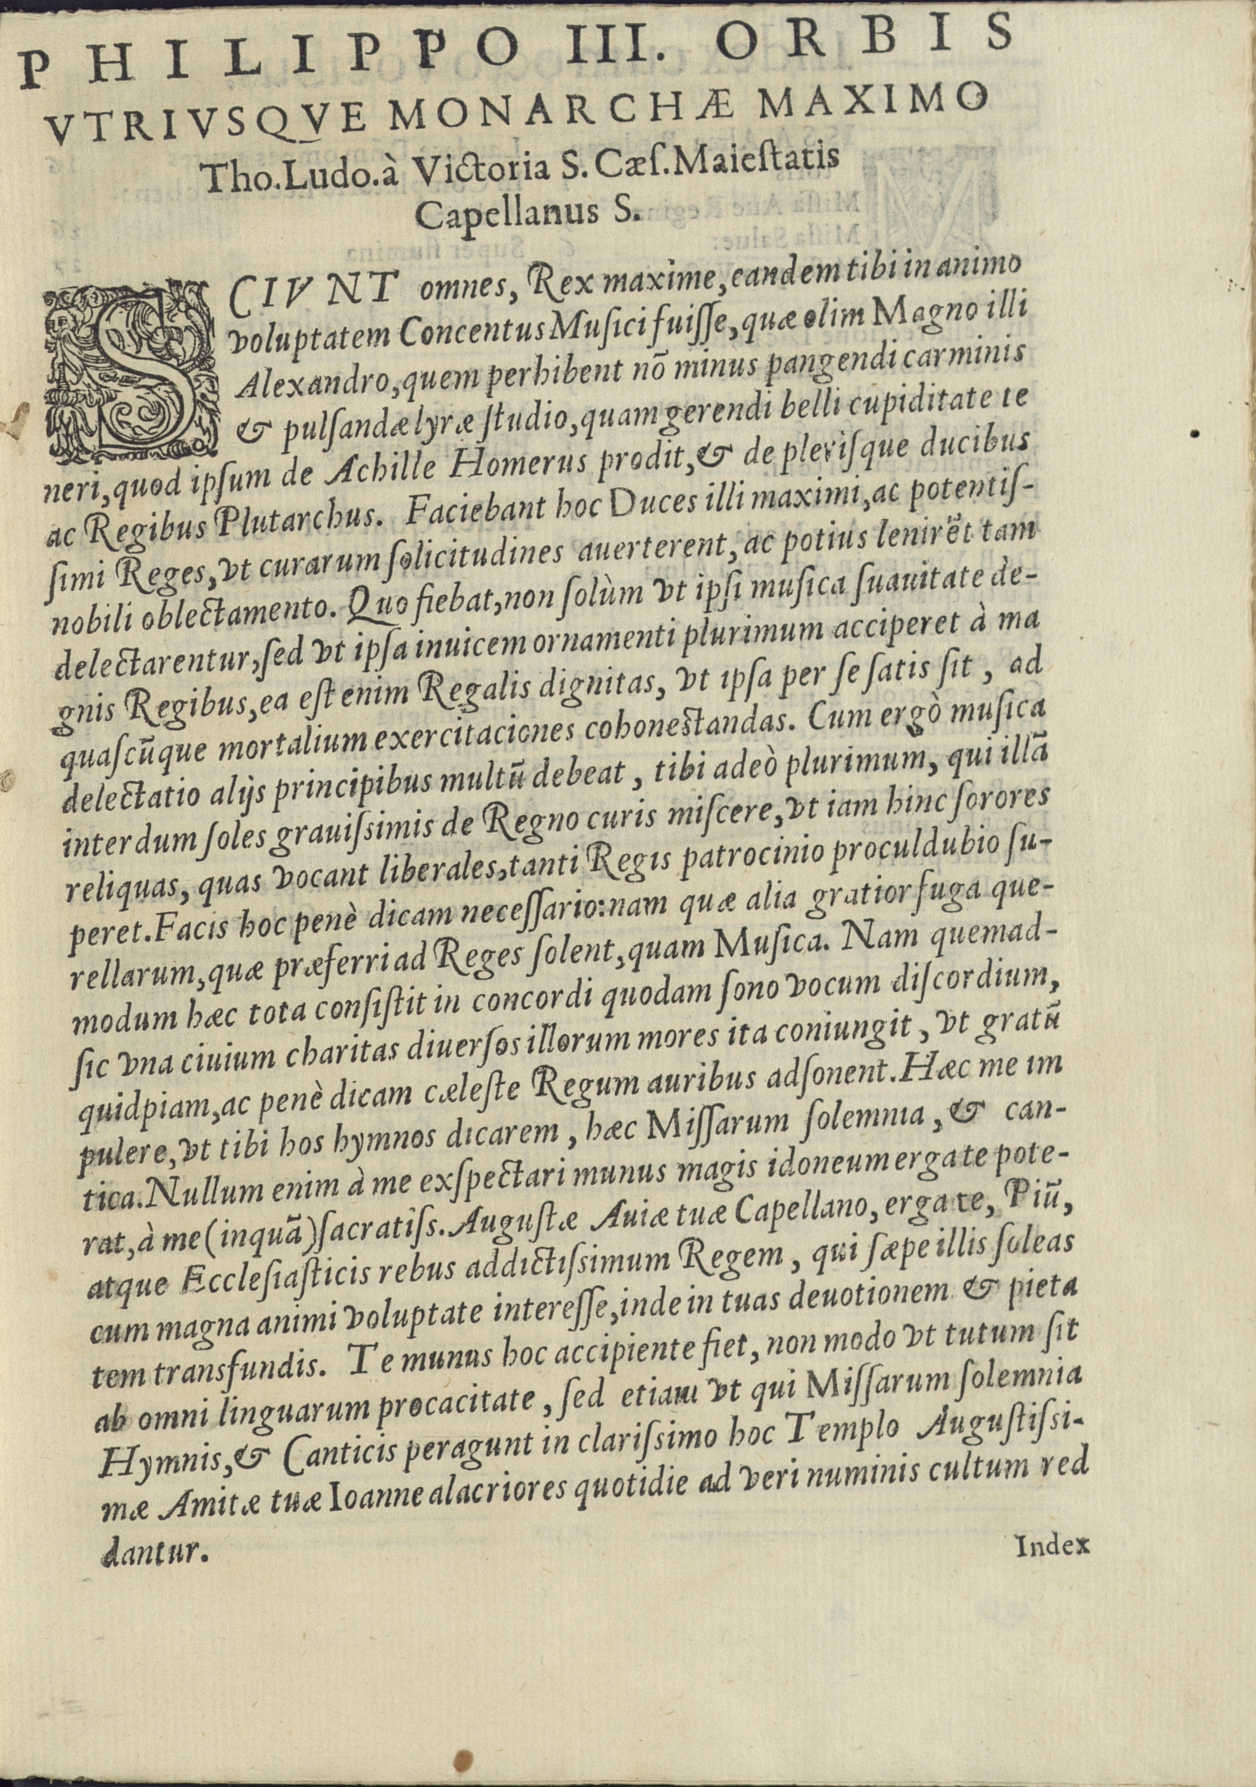 PHILIPPO III. ORBIS
VTRIVSQVE MONARCHÆ MAXIMO
Tho.Ludo.à Victoria S. Cæſ.Maieſtatis
Capellanus S.
SCIVNT omnes, Rex maxime, eandem tibi in animo
voluptatem Concentus Muſici fuiſſe, quæ olim Magno illi
Alexandro, quem perhibent nō minus pangendi carminis
& pulſandæ lyræ ſtudio, quam gerendi belli cupiditate te
neri, quod ipſum de Achille Homerus prodit, & de pleriſque ducibus
ac Regibus Plutarchus. Faciebant hoc Duces illi maximi, ac potentiſ-
ſimi Reges, vt curarum ſolicitudines auerterent, ac potius lenirēt tam
nobili oblectamento. Quo fiebat, non ſolùm vt ipſi muſica ſuauitate de-
delectarentur, ſed vt ipſa inuicem ornamenti plurimum acciperet à ma
gnis Regibus, ea eſt enim Regalis dignitas, vt ipſa per ſe ſatis ſit, ad
quaſcūque mortalium exercitaciones cohoneſtandas. Cum ergò muſica
delectatio alijs principibus multū debeat, tibi adeò plurimum, qui illā
interdum ſoles grauiſsimis de Regno curis miſcere, vt iam hinc ſorores
reliquas, quas vocant liberales, tanti Regis patrocinio proculdubio ſu-
peret. Facis hoc penè dicam neceſſario: nam quæ alia gratior fuga que-
rellarum, quæ præferri ad Reges ſolent, quam Muſica. Nam quemad-
modum hæc tota conſiſtit in concordi quodam ſono vocum diſcordium,
ſic vna ciuium charitas diuerſos illorum mores ita coniungit, vt gratū
quidpiam, ac penè dicam cæleſte Regum auribus adſonent. Hæc me im
pulere, vt tibi hos hymnos dicarem, hæc Miſſarum ſolemnia, & can-
tica. Nullum enim à me exſpectari munus magis idoneum erga te pote-
rat, à me (inquā) ſacratiſs. Auguſtæ Auiæ tuæ Capellano, erga te, Piū,
atque Eccleſiaſticis rebus addictiſsimum Regem, qui ſæpe illis ſoleas
cum magna animi voluptate intereſſe, inde in tuas deuotionem & pieta
tem transfundis. Te munus hoc accipiente fiet, non modo vt tutum ſit
ab omni linguarum procacitate, ſed etiam vt qui Miſſarum ſolemnia
Hymnis, & Canticis peragunt in clariſsimo hoc Templo Auguſtiſsi-
mæ Amitæ tuæ Ioanne alacriores quotidie ad veri numinis cultum red
dantur.
Index